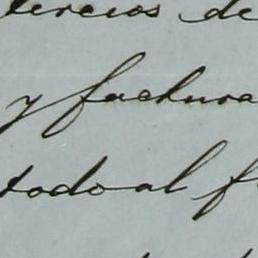 tercios de
y factura
todo al